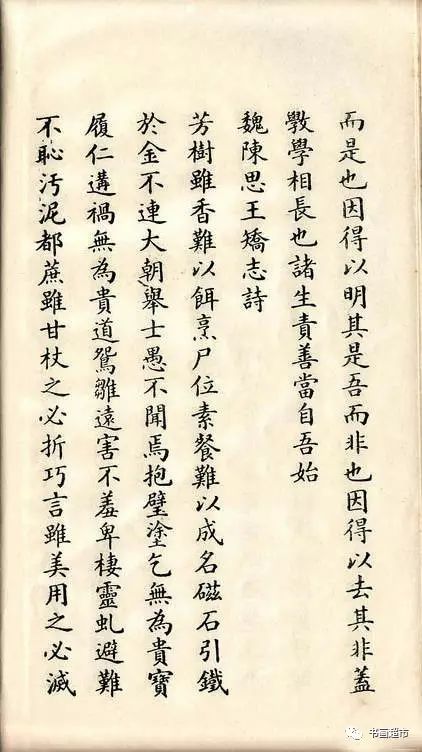 而是也因得以明其是吾而非也因得以去其非蓋
教學相長也諸生責善當自吾始
魏陳思王矯志詩
芳樹雖香難以餌烹尸位素餐難以成名磁石引鐵
於金不連大朝舉士愚不聞焉抱璧塗乞無為貴寶
履仁遘禍無為貴道鴛雛遠害不羞卑棲靈虬避難
不恥汚泥都蔗雖甘杖之必折巧言雖美用之必滅
书画超市